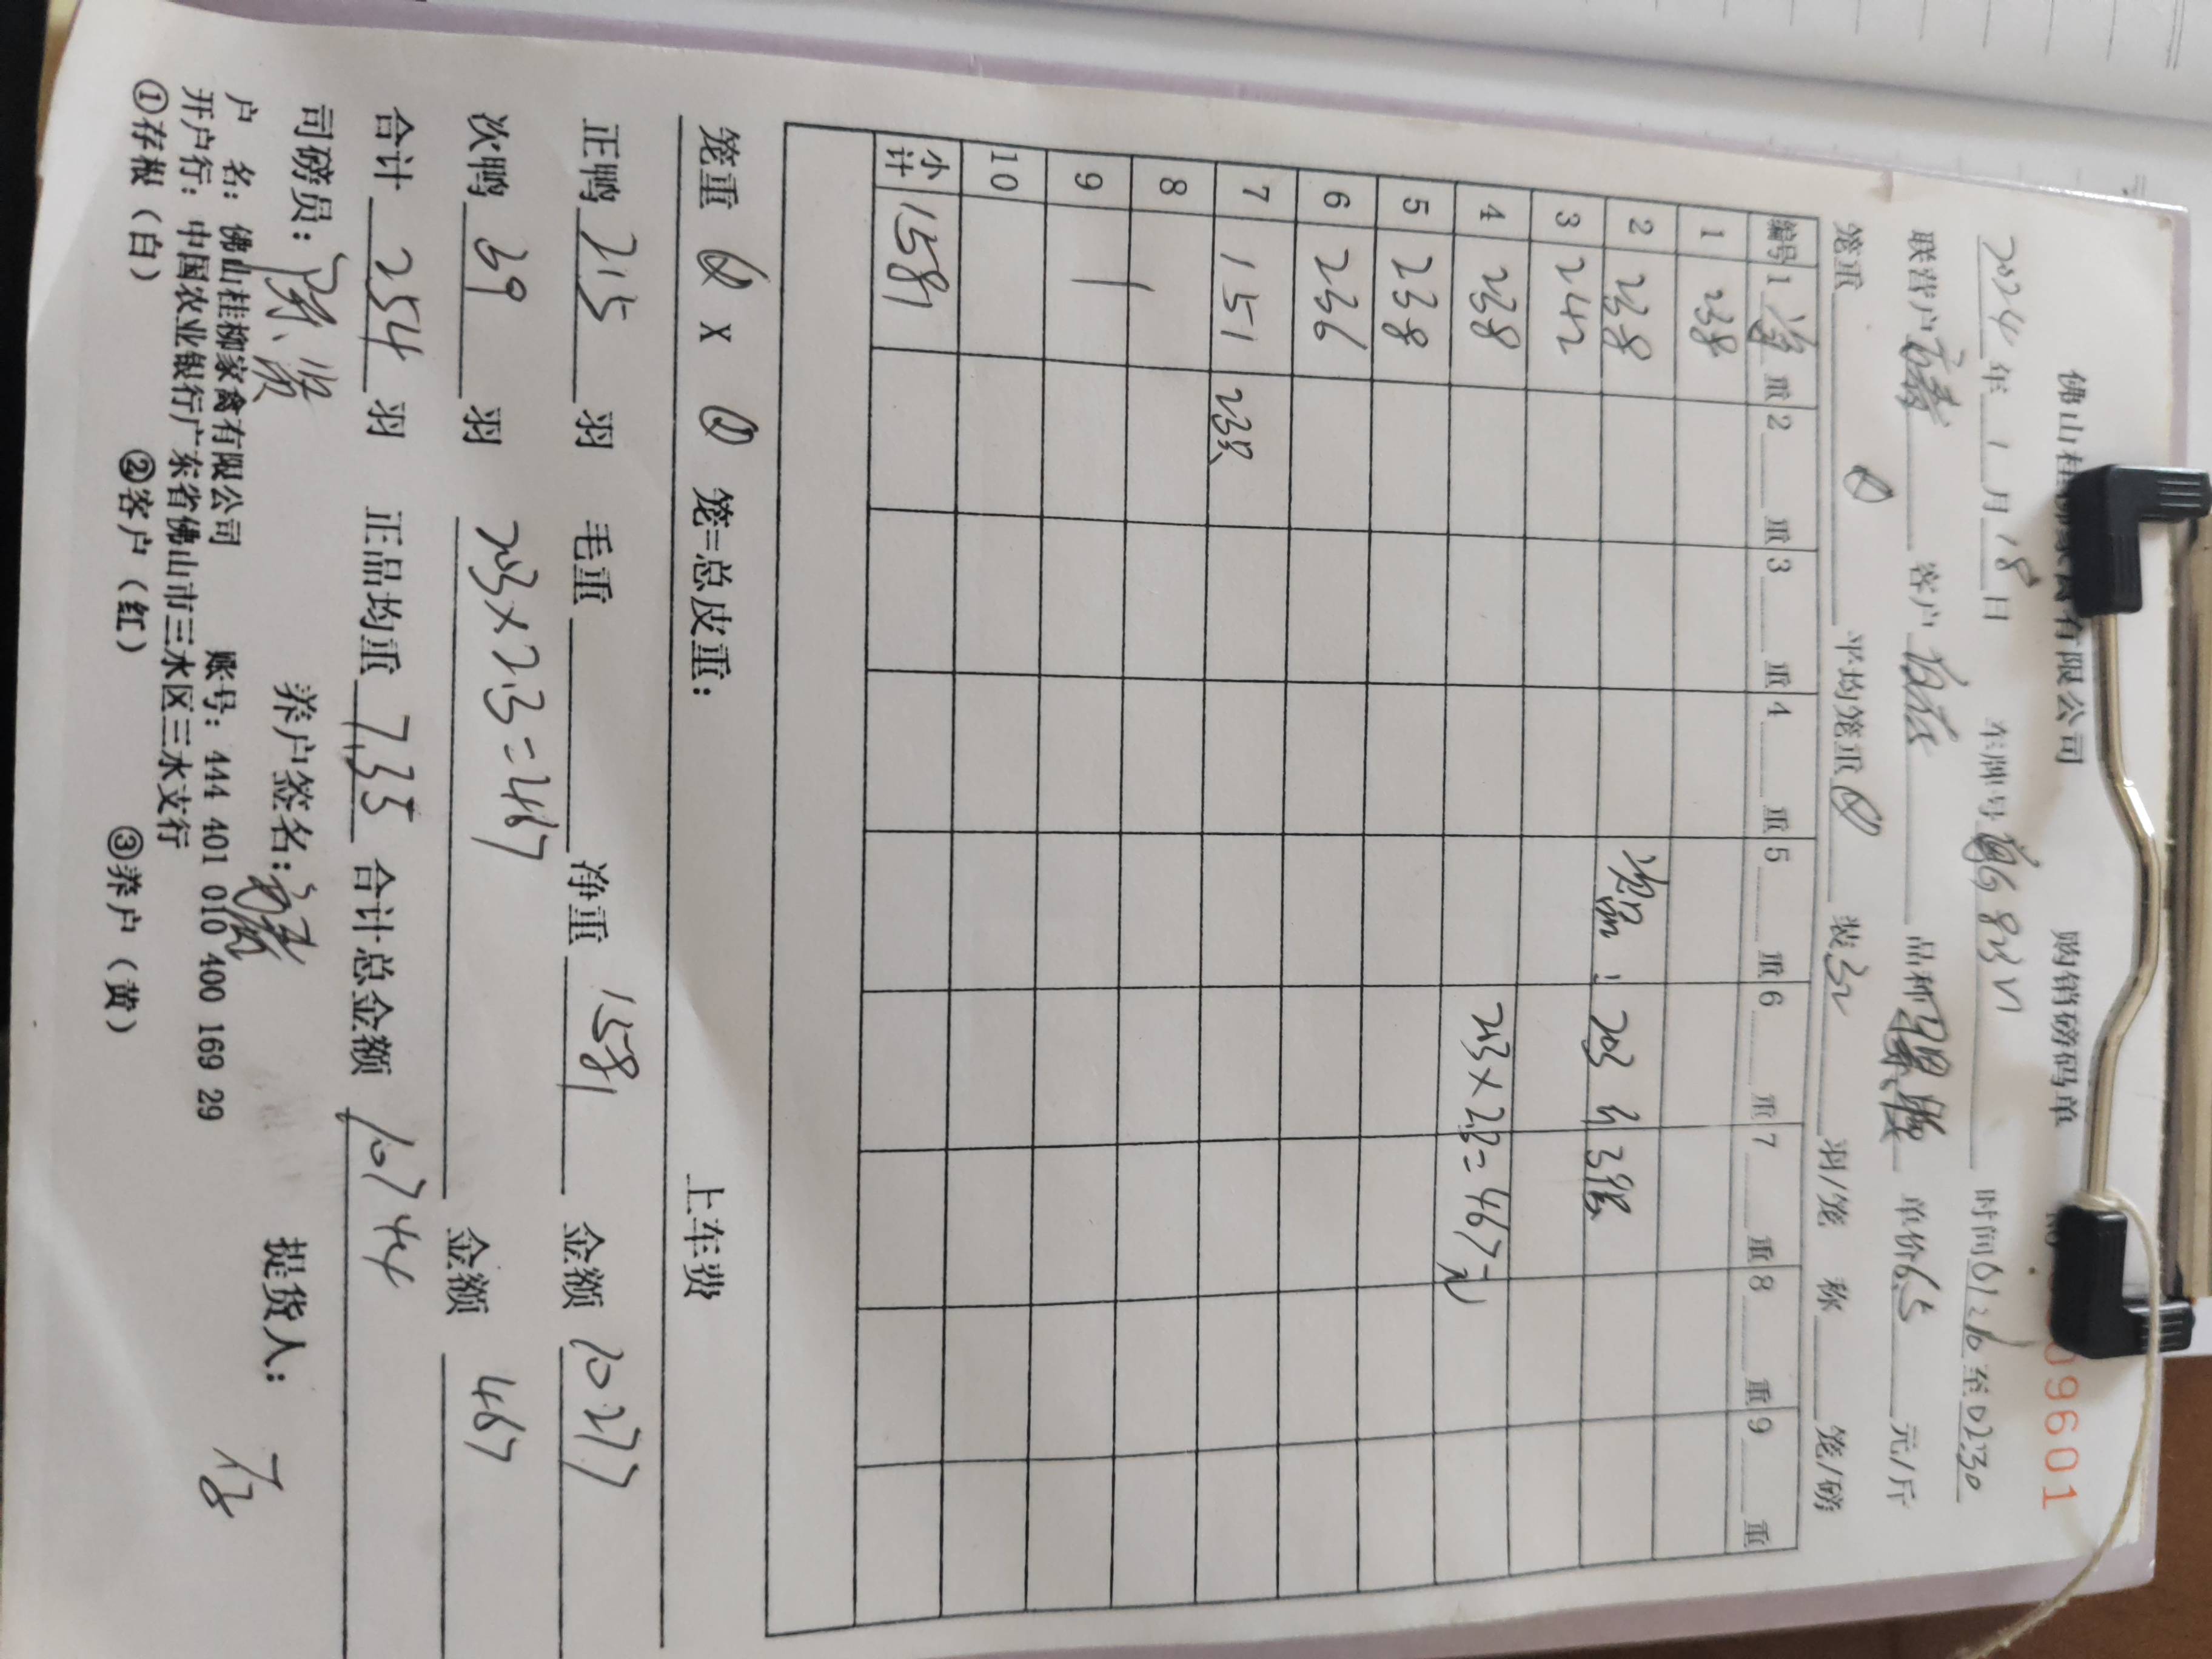 佛山桂柳家禽有限公司 购销磅码单 09601
2024年1月18日 车牌号 G8321 时间01210至0230
联营户 客户 品种 单价6.5元/斤
笼重 0 平均笼重 0 装32羽/笼 称 笼/磅
编号 1 净重 2 重 3 重 4 重 5 重 6 重 7 重 8 重 9 重
1 238
2 238 次品: 203斤 39只
3 242
4 238 203×2.3=467元
5 238
6 236
7 151 23只
8
9
10
小计 1581
笼重 0 X 0 笼=总皮重: 上车费
正鸭 215 羽 毛重 净重 1581 金额 10277
次鸭 39 羽 203×2.3=467 金额 467
合计 254 羽 正品均重 7.35 合计总金额 10744
司磅员: 养户签名: 提货人:
户 名: 佛山桂柳家禽有限公司 账号: 444 401 010 400 169 29
开户行: 中国农业银行广东省佛山市三水区三水支行
①存根(白) ②客户(红) ③养户(黄)